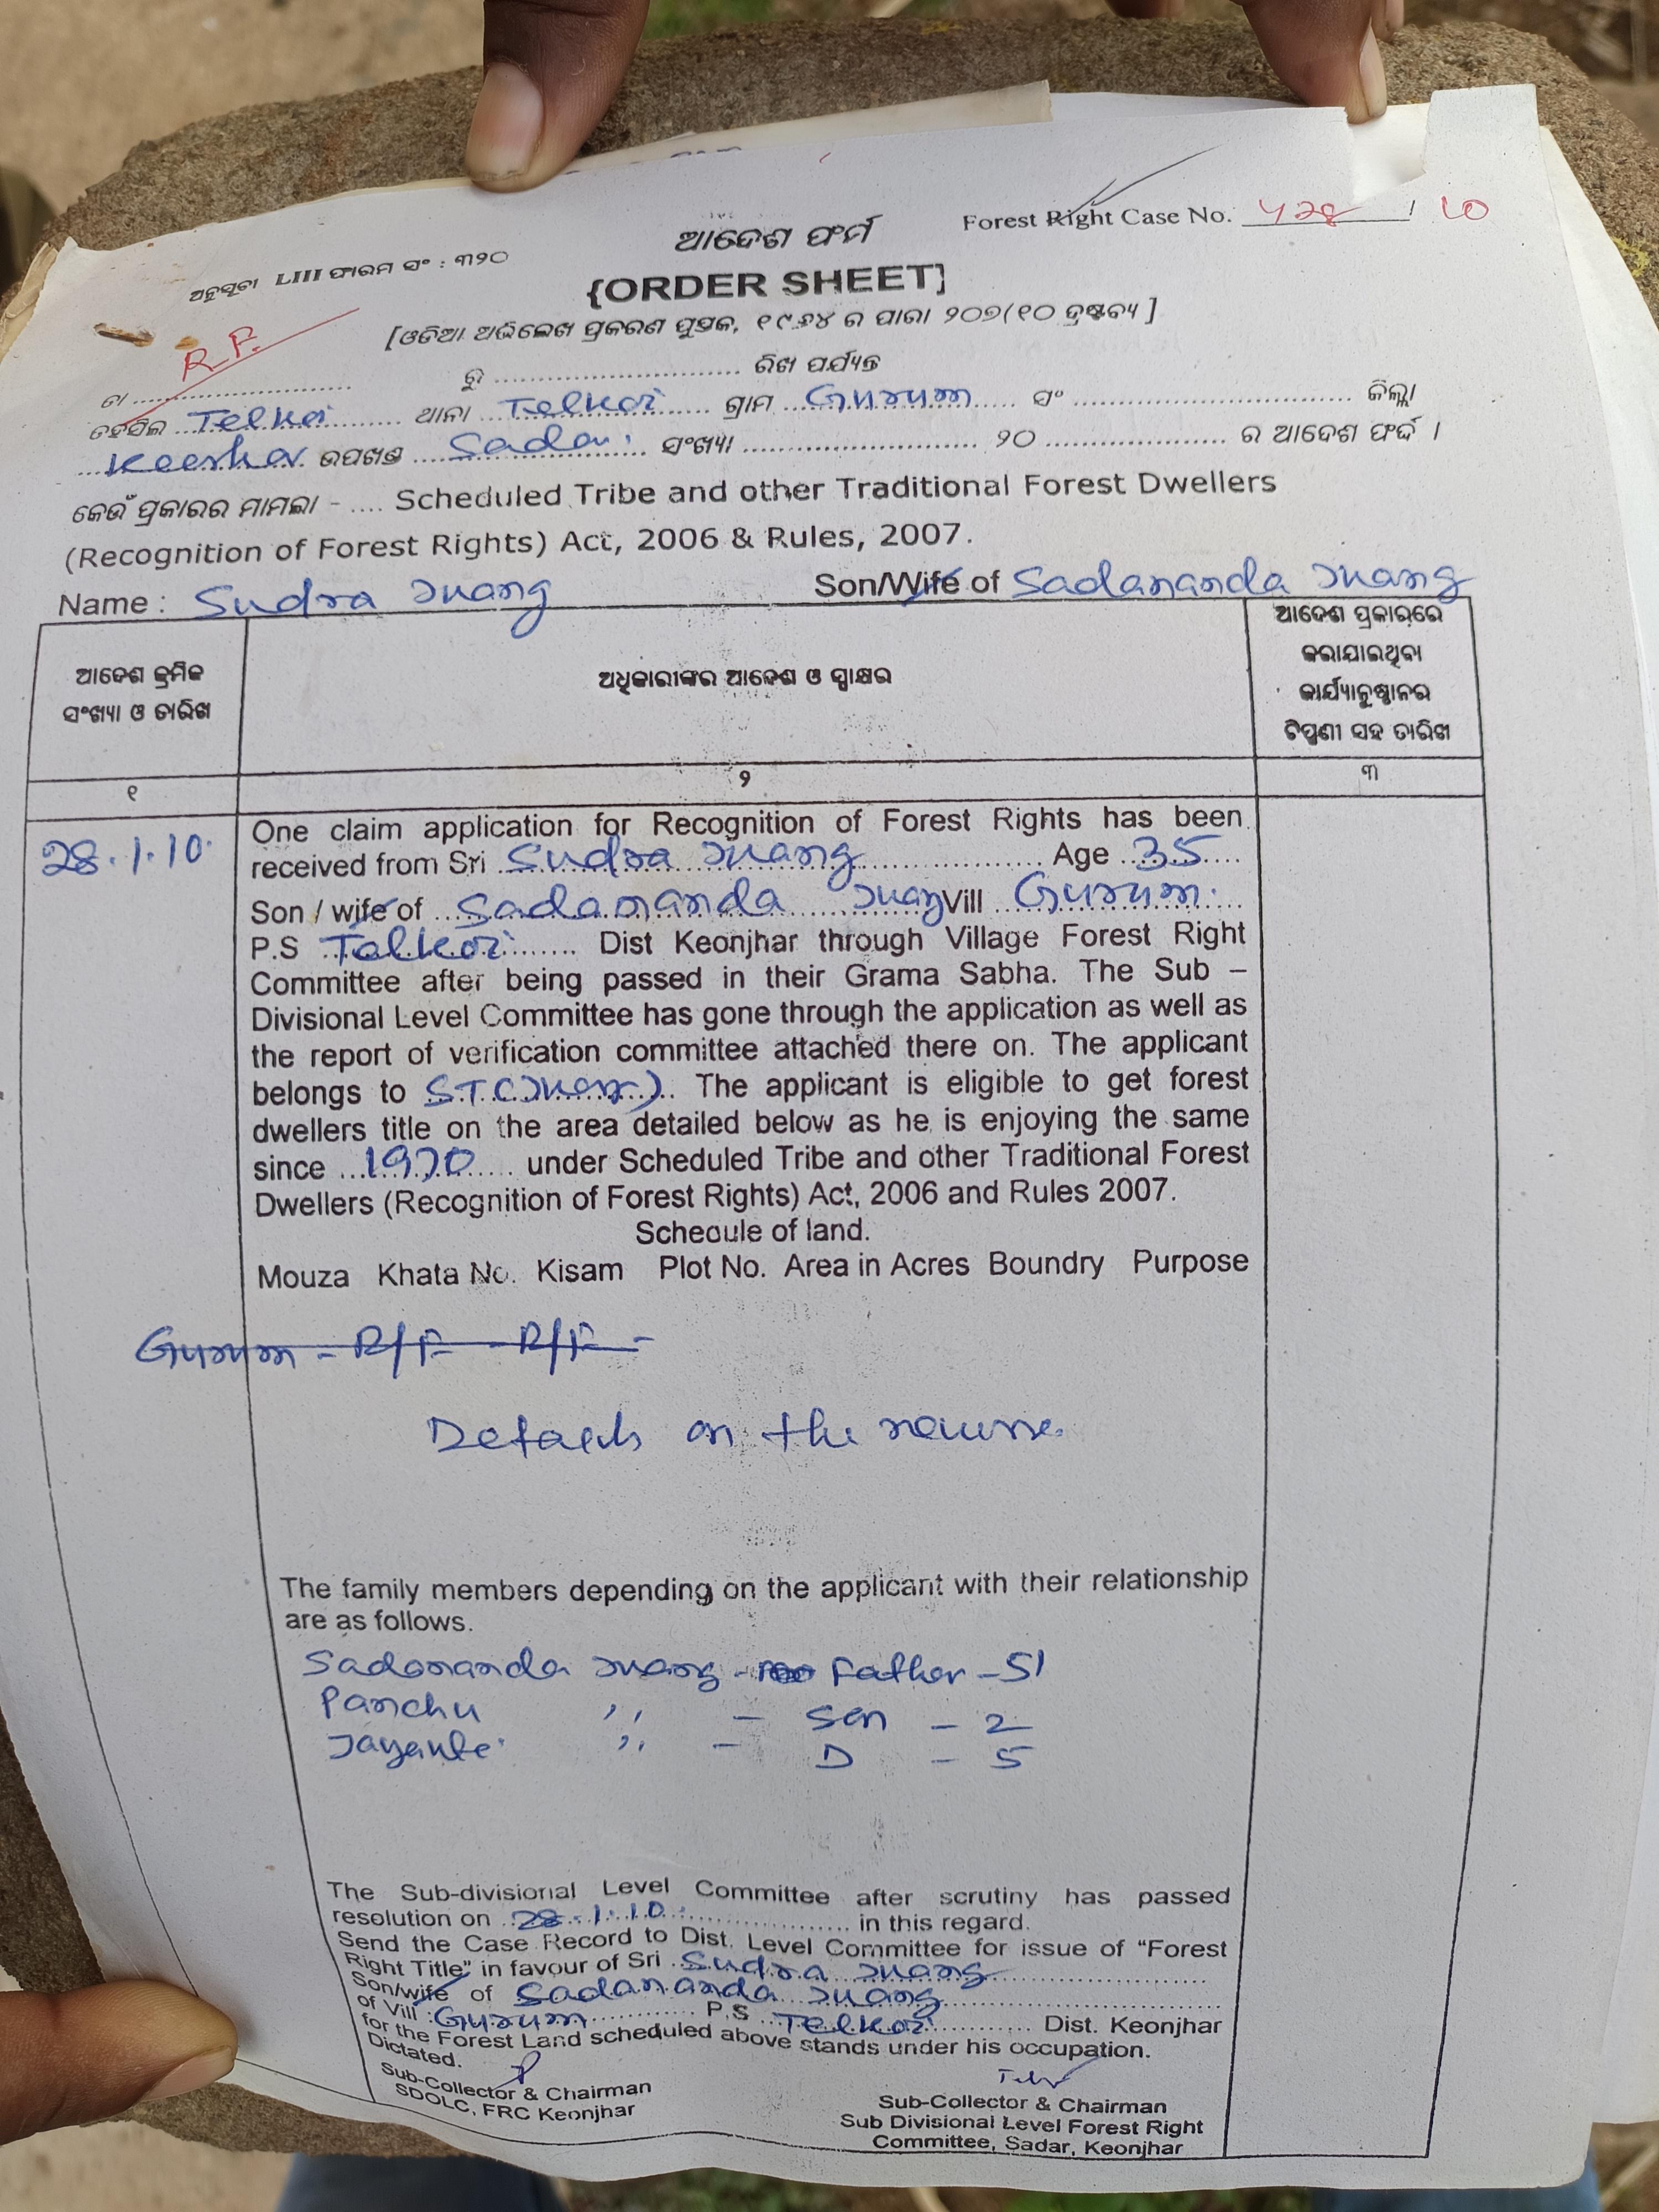 Forest Right Case No. 428 / 10
ଆଦେଶ ଫର୍ମ
ଅନୁସୂଚୀ LIII ଫାରମ ସଂ : ୩୨୦
{ORDER SHEET]
[ଓଡିଆ ଅଭିଲେଖ ପ୍ରକରଣ ପୁସ୍ତକ, ୧୯୬୪ ର ପାରା ୨୦୭(୧୦ ଦ୍ରଷ୍ଟବ୍ୟ ]
R.F.
ତା .................... ରୁ .................... ରିଖ ପର୍ଯ୍ୟନ୍ତ
ତହସିଲ Telkoi ଥାନା Telkoi ଗ୍ରାମ Gurum ସଂ .................... ଜିଲ୍ଲା
ଉପଖଣ୍ଡ Sadar ସଂଖ୍ୟା .................... ୨୦ .................... ର ଆଦେଶ ଫର୍ଦ୍ଦ ।
କେଉଁ ପ୍ରକାରର ମାମଲା - .... Scheduled Tribe and other Traditional Forest Dwellers
(Recognition of Forest Rights) Act, 2006 & Rules, 2007.
Name : Sudra Juang Son/Wife of Sadananda Juang
ଆଦେଶ କ୍ରମିକ
ସଂଖ୍ୟା ଓ ତାରିଖ
ଅଧିକାରୀଙ୍କର ଆଦେଶ ଓ ସ୍ୱାକ୍ଷର
ଆଦେଶ ପ୍ରକାରରେ
କରାଯାଇଥିବା
କାର୍ଯ୍ୟାନୁଷ୍ଠାନର
ଟିପ୍ପଣୀ ସହ ତାରିଖ
୧
୨
୩
28.1.10.
One claim application for Recognition of Forest Rights has been
received from Sri Sudra Juang Age 35
Son / wife of Sadananda Juang Vill Gurum
P.S Telkoi Dist Keonjhar through Village Forest Right
Committee after being passed in their Grama Sabha. The Sub –
Divisional Level Committee has gone through the application as well as
the report of verification committee attached there on. The applicant
belongs to S.T.(Juang). The applicant is eligible to get forest
dwellers title on the area detailed below as he is enjoying the same
since 1970 under Scheduled Tribe and other Traditional Forest
Dwellers (Recognition of Forest Rights) Act, 2006 and Rules 2007.
Schedule of land.
Mouza Khata No. Kisam Plot No. Area in Acres Boundry Purpose
Gurum - R/F - R/F -
Details on the reverse.
The family members depending on the applicant with their relationship
are as follows.
Sadananda Juang - Father - 51
Panchu ,, - Son - 2
Jayante ,, - D - 5
The Sub-divisional Level Committee after scrutiny has passed
resolution on 28.1.10. in this regard.
Send the Case Record to Dist. Level Committee for issue of "Forest
Right Title" in favour of Sri Sudra Juang
Son/wife of Sadananda Juang
of Vill : Gurum P.S Telkoi Dist. Keonjhar
for the Forest Land scheduled above stands under his occupation.
Dictated.
Sub-Collector & Chairman
SDOLC, FRC Keonjhar
Sub-Collector & Chairman
Sub Divisional Level Forest Right
Committee, Sadar, Keonjhar